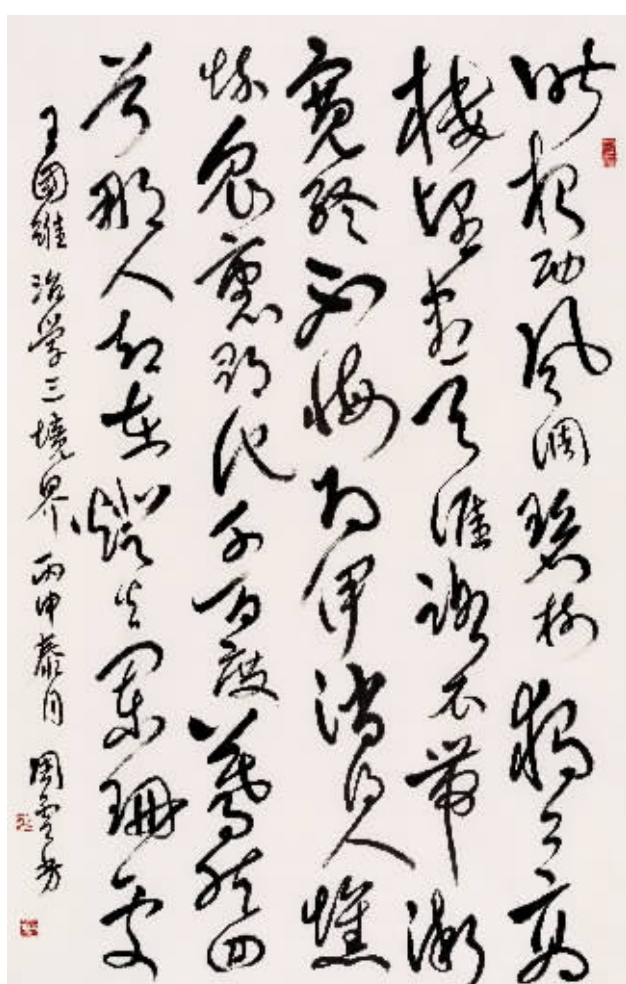 昨夜西風凋碧樹獨上高
樓望盡天涯路衣帶漸
寬終不悔為伊消得人憔
悴眾裏尋他千百度驀然回
首那人却在燈火闌珊處
王國維治学三境界丙申春月周雲芳